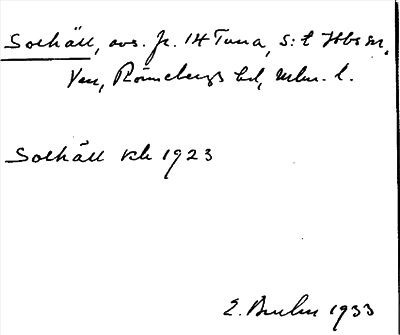 Solhäll, avs. fr. 14 Tuna, S:t Ibs sn,
Ven, Rönnebergs hd, Mlm. l.
Solhäll kk 1923
E. Bruhn 1933